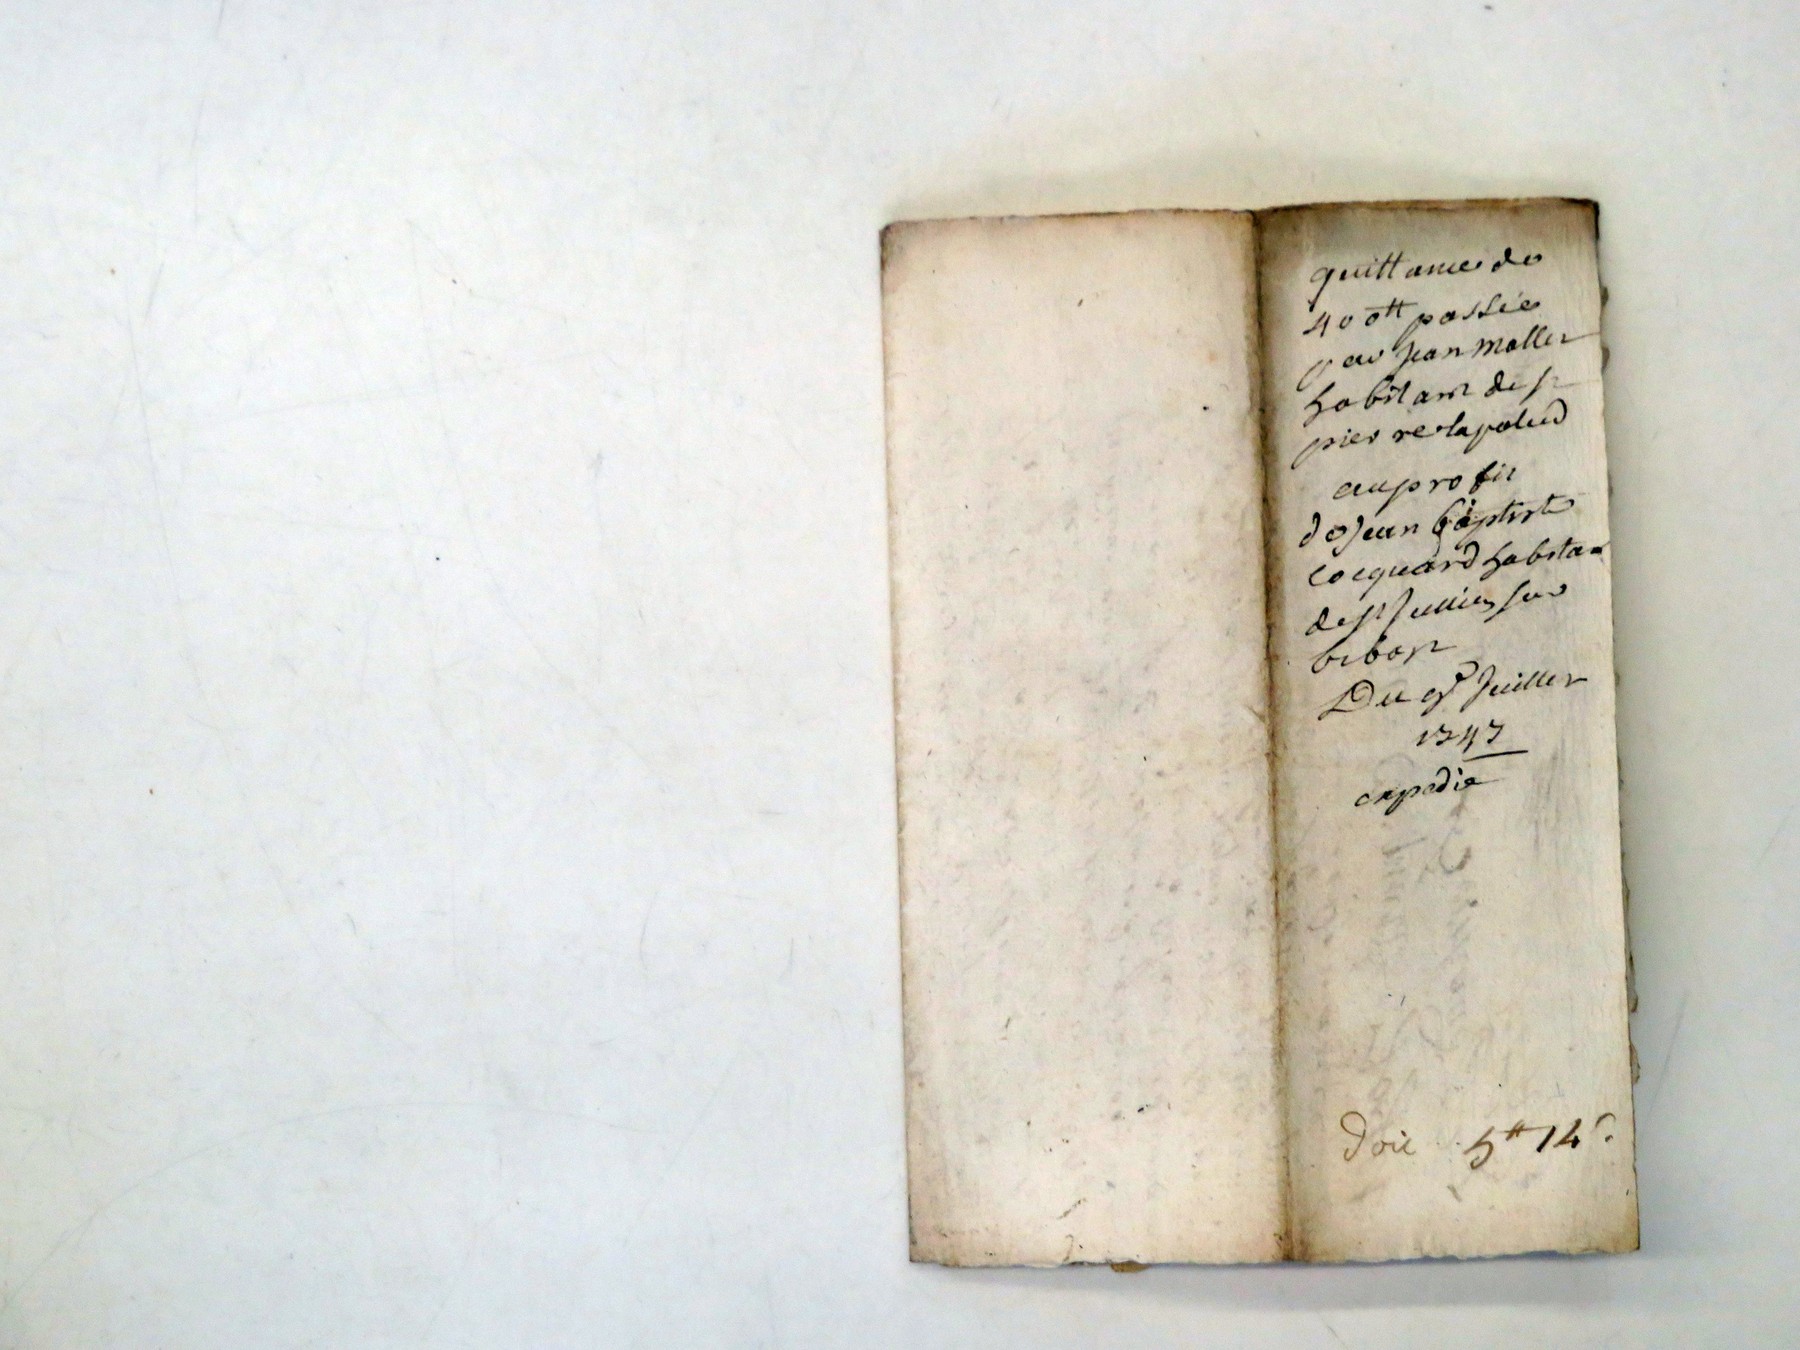 quittance de
400tt passée
par Jean Mallet
habitant de st
pierre lapalud
au profit
de Jean baptiste
Cocquard habitan
de st Jullien sur
bibost
Du 9e Juillet
1747
expedie
doit 5tt 14s.